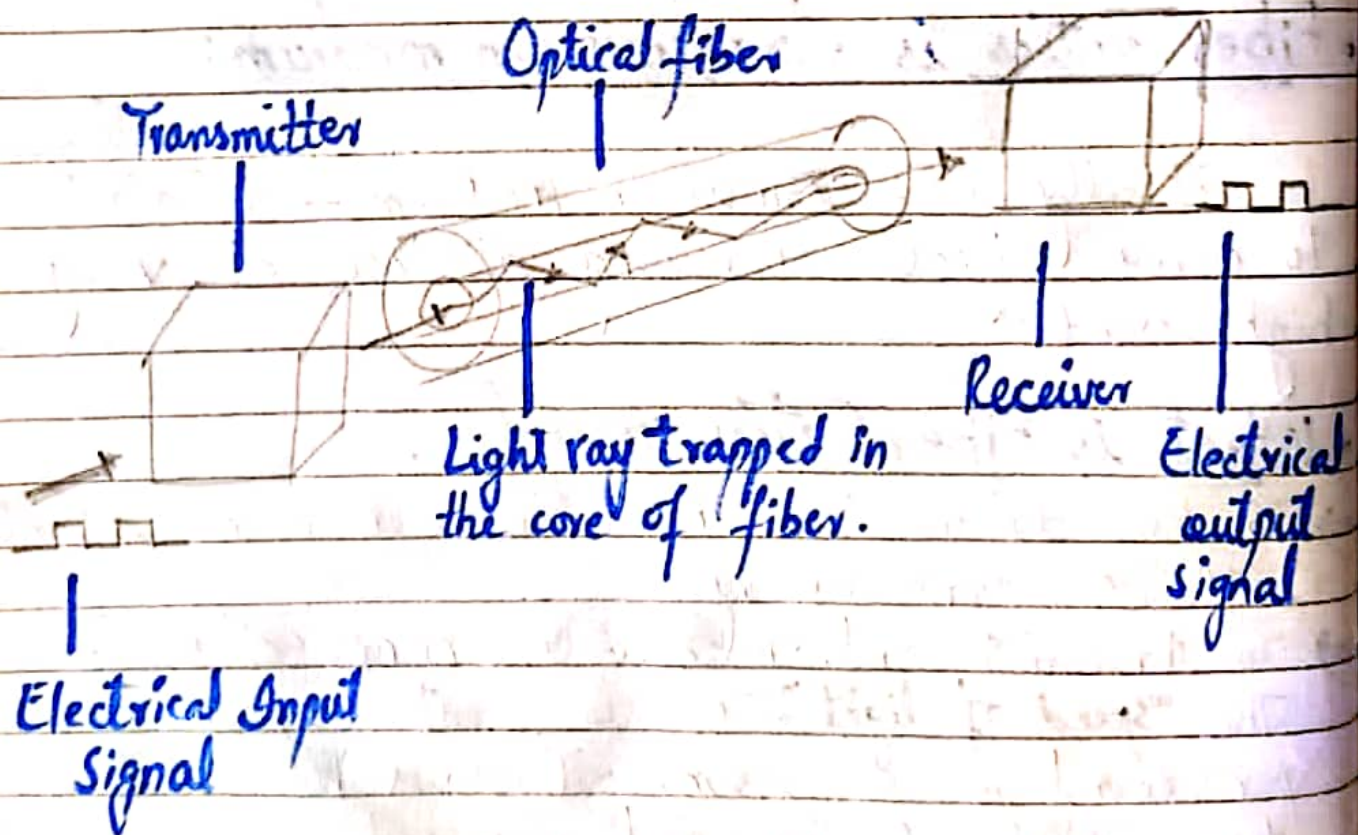 Optical fiber
Transmitter
Receiver
Light ray trapped in
the core of fiber.
Electrical
output
signal
Electrical Input
Signal